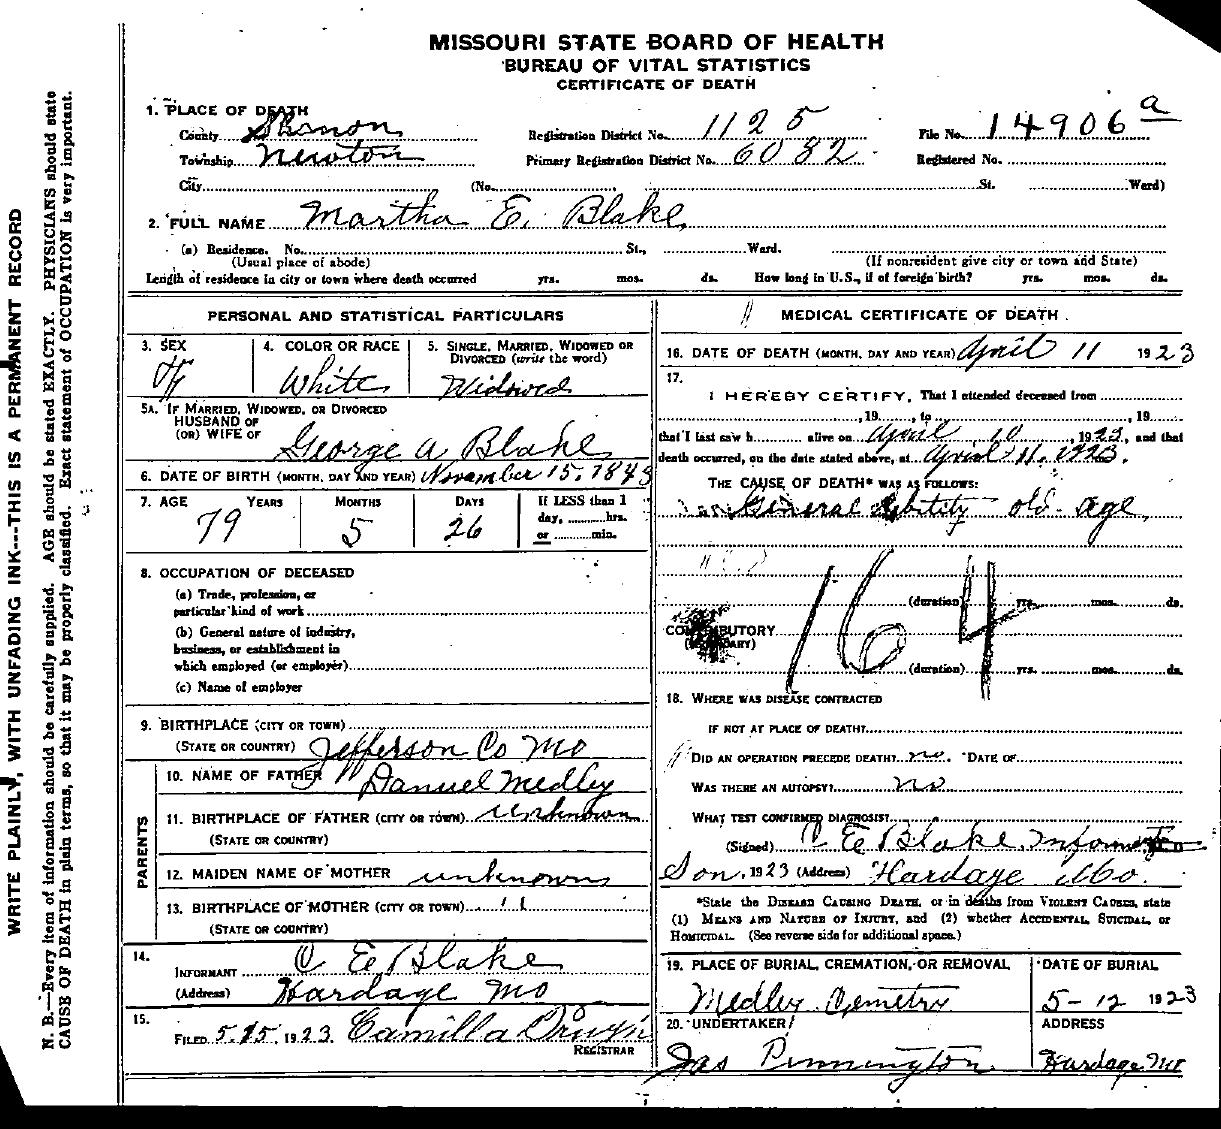 MISSOURI STATE BOARD OF HEALTH
BUREAU OF VITAL STATISTICS
CERTIFICATE OF DEATH
1. PLACE OF DEATH
County Shannon Registration District No. 1125 File No. 14906 a
Township Newton Primary Registration District No. 6082 Registered No.
City (No. St. Ward)
2. FULL NAME Martha E. Blake
(a) Residence. No. St., Ward.
(Usual place of abode) (If nonresident give city or town and State)
Length of residence in city or town where death occurred yrs. mos. ds. How long in U.S., if of foreign birth? yrs. mos. ds.
PERSONAL AND STATISTICAL PARTICULARS
3. SEX 4. COLOR OR RACE 5. SINGLE, MARRIED, WIDOWED OR
DIVORCED (write the word)
White Widowed
5A. IF MARRIED, WIDOWED, OR DIVORCED
HUSBAND OF
(OR) WIFE OF George A Blake
6. DATE OF BIRTH (MONTH, DAY AND YEAR) November 15. 1843
7. AGE YEARS MONTHS DAYS If LESS than 1
day, hrs.
or min.
79 5 26
8. OCCUPATION OF DECEASED
(a) Trade, profession, or
particular kind of work
(b) General nature of industry,
business, or establishment in
which employed (or employer)
(c) Name of employer
9. BIRTHPLACE (CITY OR TOWN)
(STATE OR COUNTRY) Jefferson Co Mo
PARENTS
10. NAME OF FATHER Danuel Medley
11. BIRTHPLACE OF FATHER (CITY OR TOWN) unknown
(STATE OR COUNTRY)
12. MAIDEN NAME OF MOTHER unknown
13. BIRTHPLACE OF MOTHER (CITY OR TOWN) " "
(STATE OR COUNTRY)
14.
INFORMANT C E Blake
(Address) Hardage Mo
15.
FILED 5.15, 1923 Camilla
REGISTRAR
MEDICAL CERTIFICATE OF DEATH
16. DATE OF DEATH (MONTH, DAY AND YEAR) April 11 1923
17.
I HEREBY CERTIFY, That I attended deceased from
, 19 , to , 19
that I last saw h alive on April 10, 1923, and that
death occurred, on the date stated above, at April 11. 1923.
THE CAUSE OF DEATH* WAS AS FOLLOWS:
General debility old age
164
(duration) yrs. mos. ds.
CONTRIBUTORY
(SECONDARY)
(duration) yrs. mos. ds.
18. WHERE WAS DISEASE CONTRACTED
IF NOT AT PLACE OF DEATH?
DID AN OPERATION PRECEDE DEATH? no. DATE OF
WAS THERE AN AUTOPSY? no
WHAT TEST CONFIRMED DIAGNOSIS?
(Signed) C E Blake
Son, 1923 (Address) Hardage Mo.
*State the DISEASE CAUSING DEATH, or in deaths from VIOLENT CAUSES, state
(1) MEANS AND NATURE OF INJURY, and (2) whether ACCIDENTAL, SUICIDAL, or
HOMICIDAL. (See reverse side for additional space.)
19. PLACE OF BURIAL, CREMATION, OR REMOVAL DATE OF BURIAL
Medley Cemetry 5-12 1923
20. UNDERTAKER ADDRESS
Jas Pennington Hardage Mo
WRITE PLAINLY, WITH UNFADING INK---THIS IS A PERMANENT RECORD
N. B.—Every item of information should be carefully supplied. AGE should be stated EXACTLY. PHYSICIANS should state
CAUSE OF DEATH in plain terms, so that it may be properly classified. Exact statement of OCCUPATION is very important.